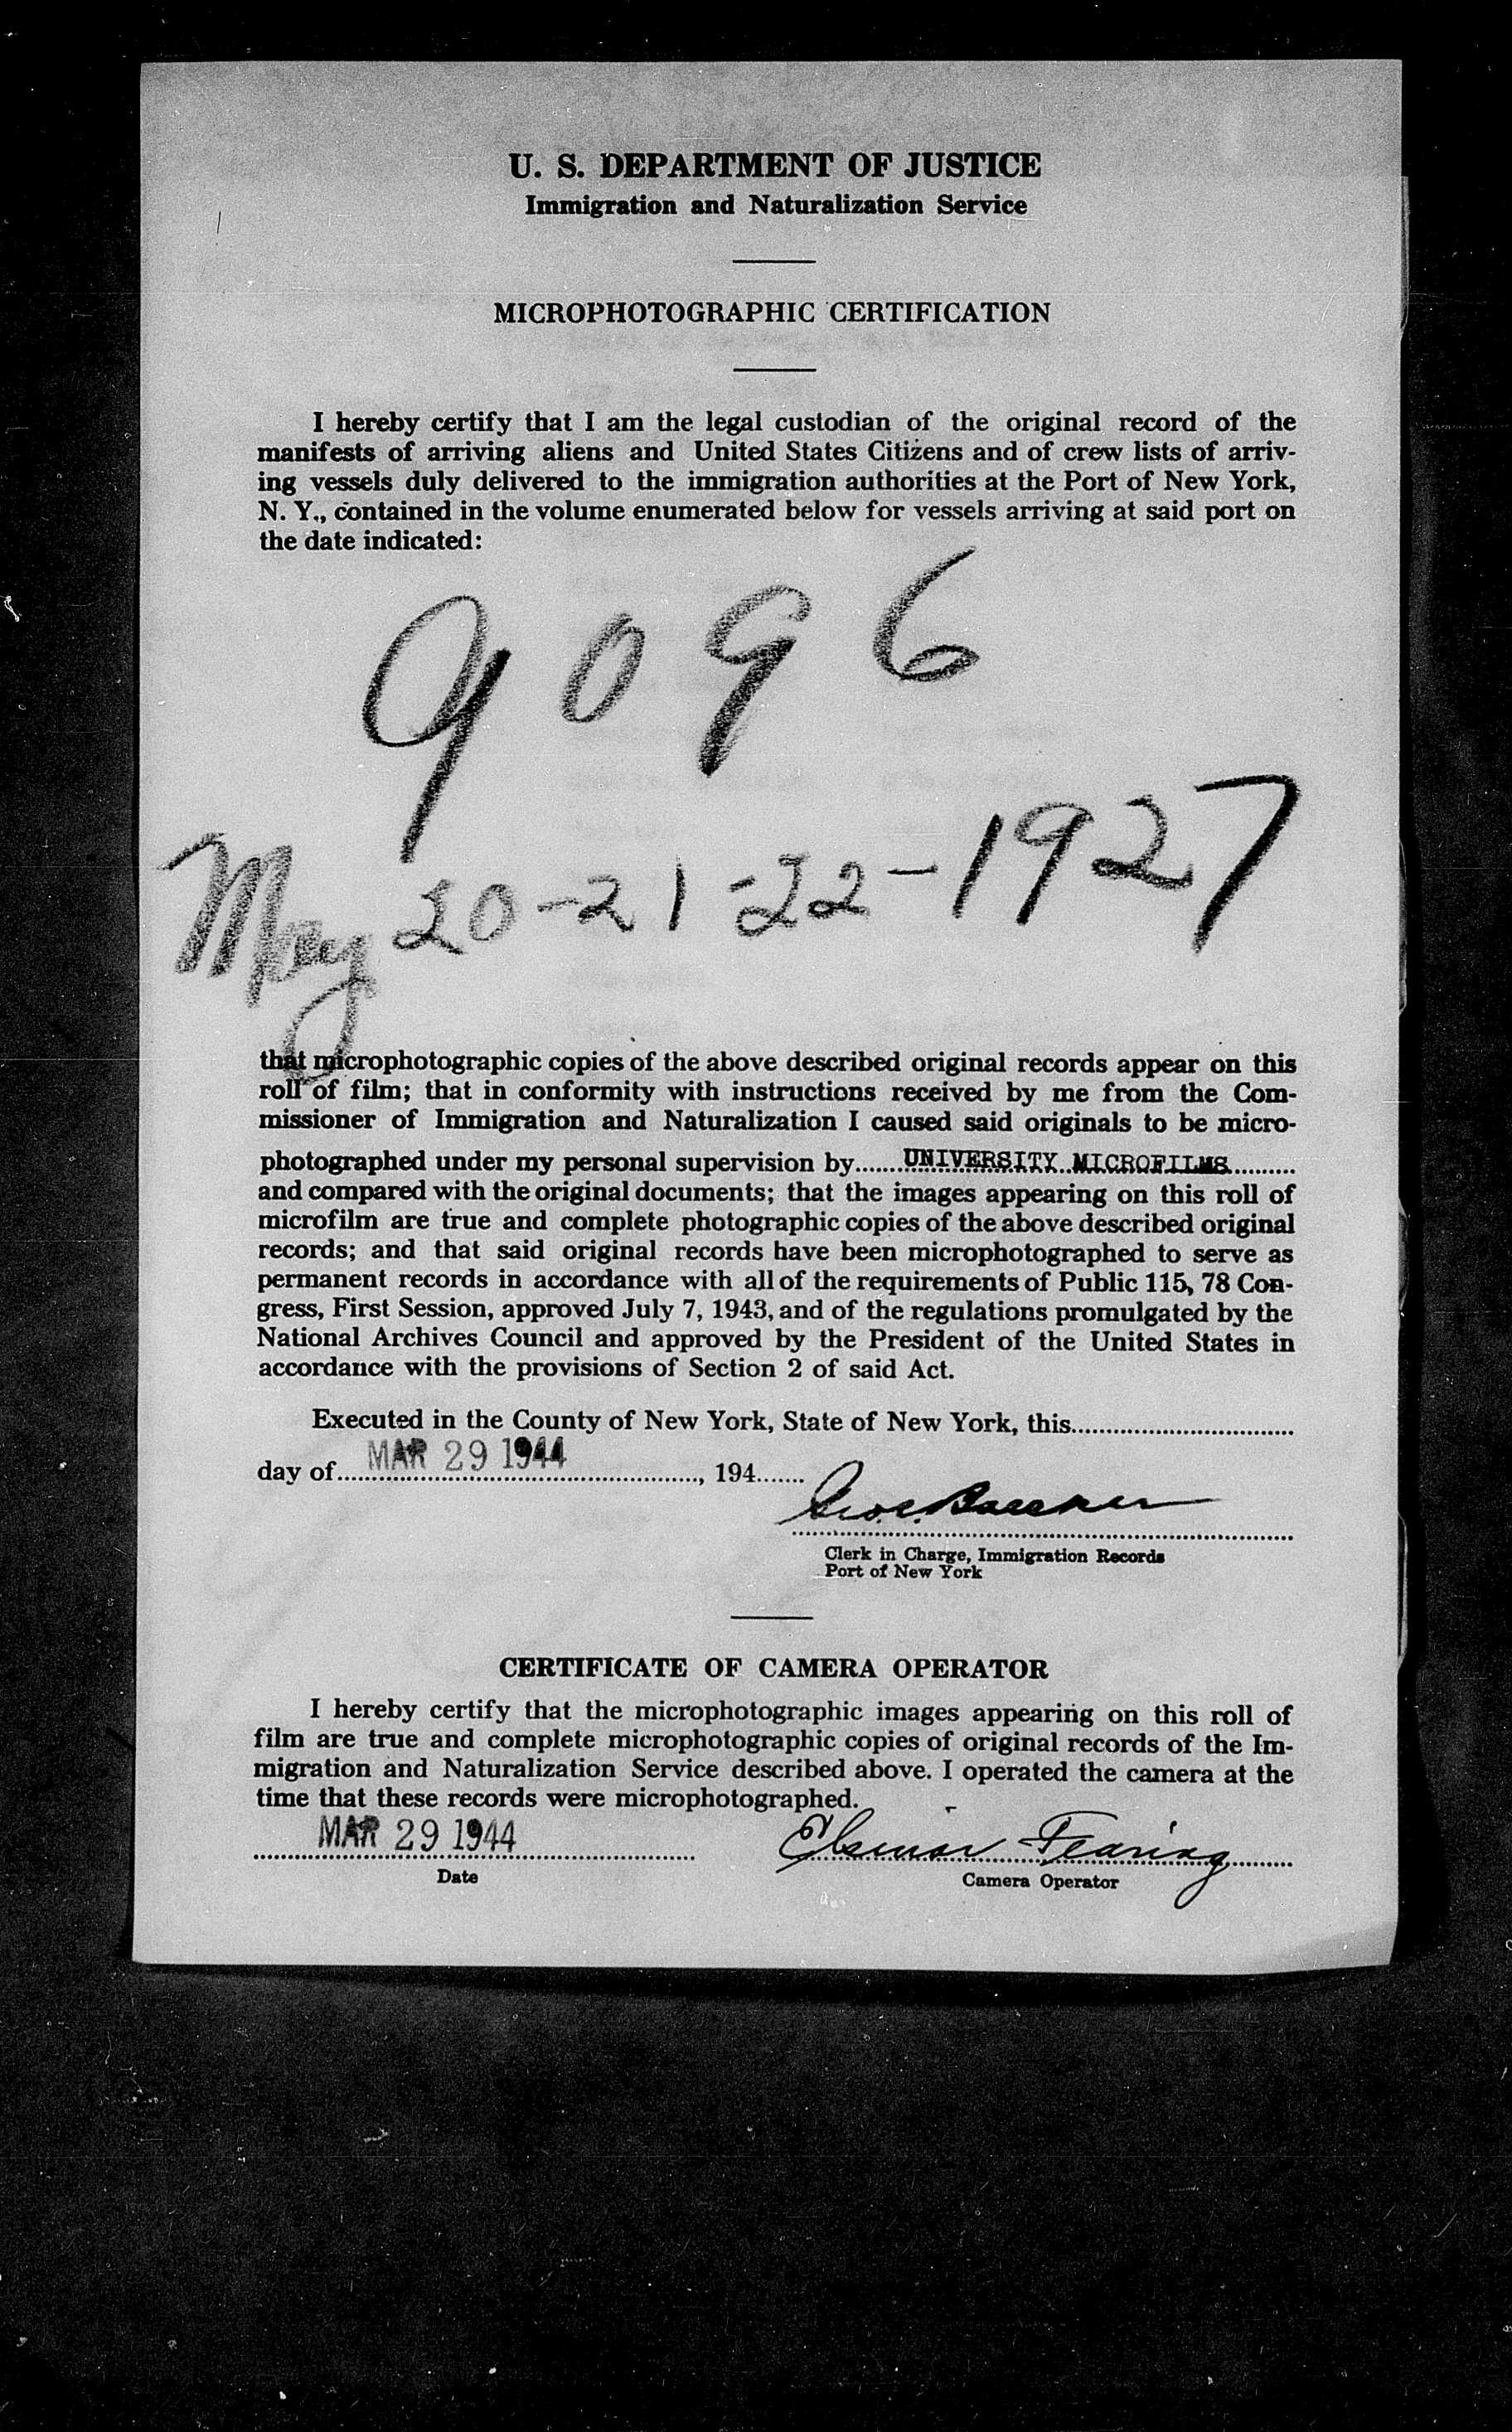 U. S. DEPARTMENT OF JUSTICE
Immigration and Naturalization Service
MICROPHOTOGRAPHIC CERTIFICATION
I hereby certify that I am the legal custodian of the original record of the
manifests of arriving aliens and United States Citizens and of crew lists of arriv-
ing vessels duly delivered to the immigration authorities at the Port of New York,
N. Y., contained in the volume enumerated below for vessels arriving at said port on
the date indicated:
9096
May 20-21-22-1927
that microphotographic copies of the above described original records appear on this
roll of film; that in conformity with instructions received by me from the Com-
missioner of Immigration and Naturalization I caused said originals to be micro-
photographed under my personal supervision by......UNIVERSITY MICROFILMS..........
and compared with the original documents; that the images appearing on this roll of
microfilm are true and complete photographic copies of the above described original
records; and that said original records have been microphotographed to serve as
permanent records in accordance with all of the requirements of Public 115, 78 Con-
gress, First Session, approved July 7, 1943, and of the regulations promulgated by the
National Archives Council and approved by the President of the United States in
accordance with the provisions of Section 2 of said Act.
Executed in the County of New York, State of New York, this................................
day of MAR 29 1944, 194.......
Geo.
Clerk in Charge, Immigration Records
Port of New York
CERTIFICATE OF CAMERA OPERATOR
I hereby certify that the microphotographic images appearing on this roll of
film are true and complete microphotographic copies of original records of the Im-
migration and Naturalization Service described above. I operated the camera at the
time that these records were microphotographed.
MAR 29 1944 Fearing
Date Camera Operator